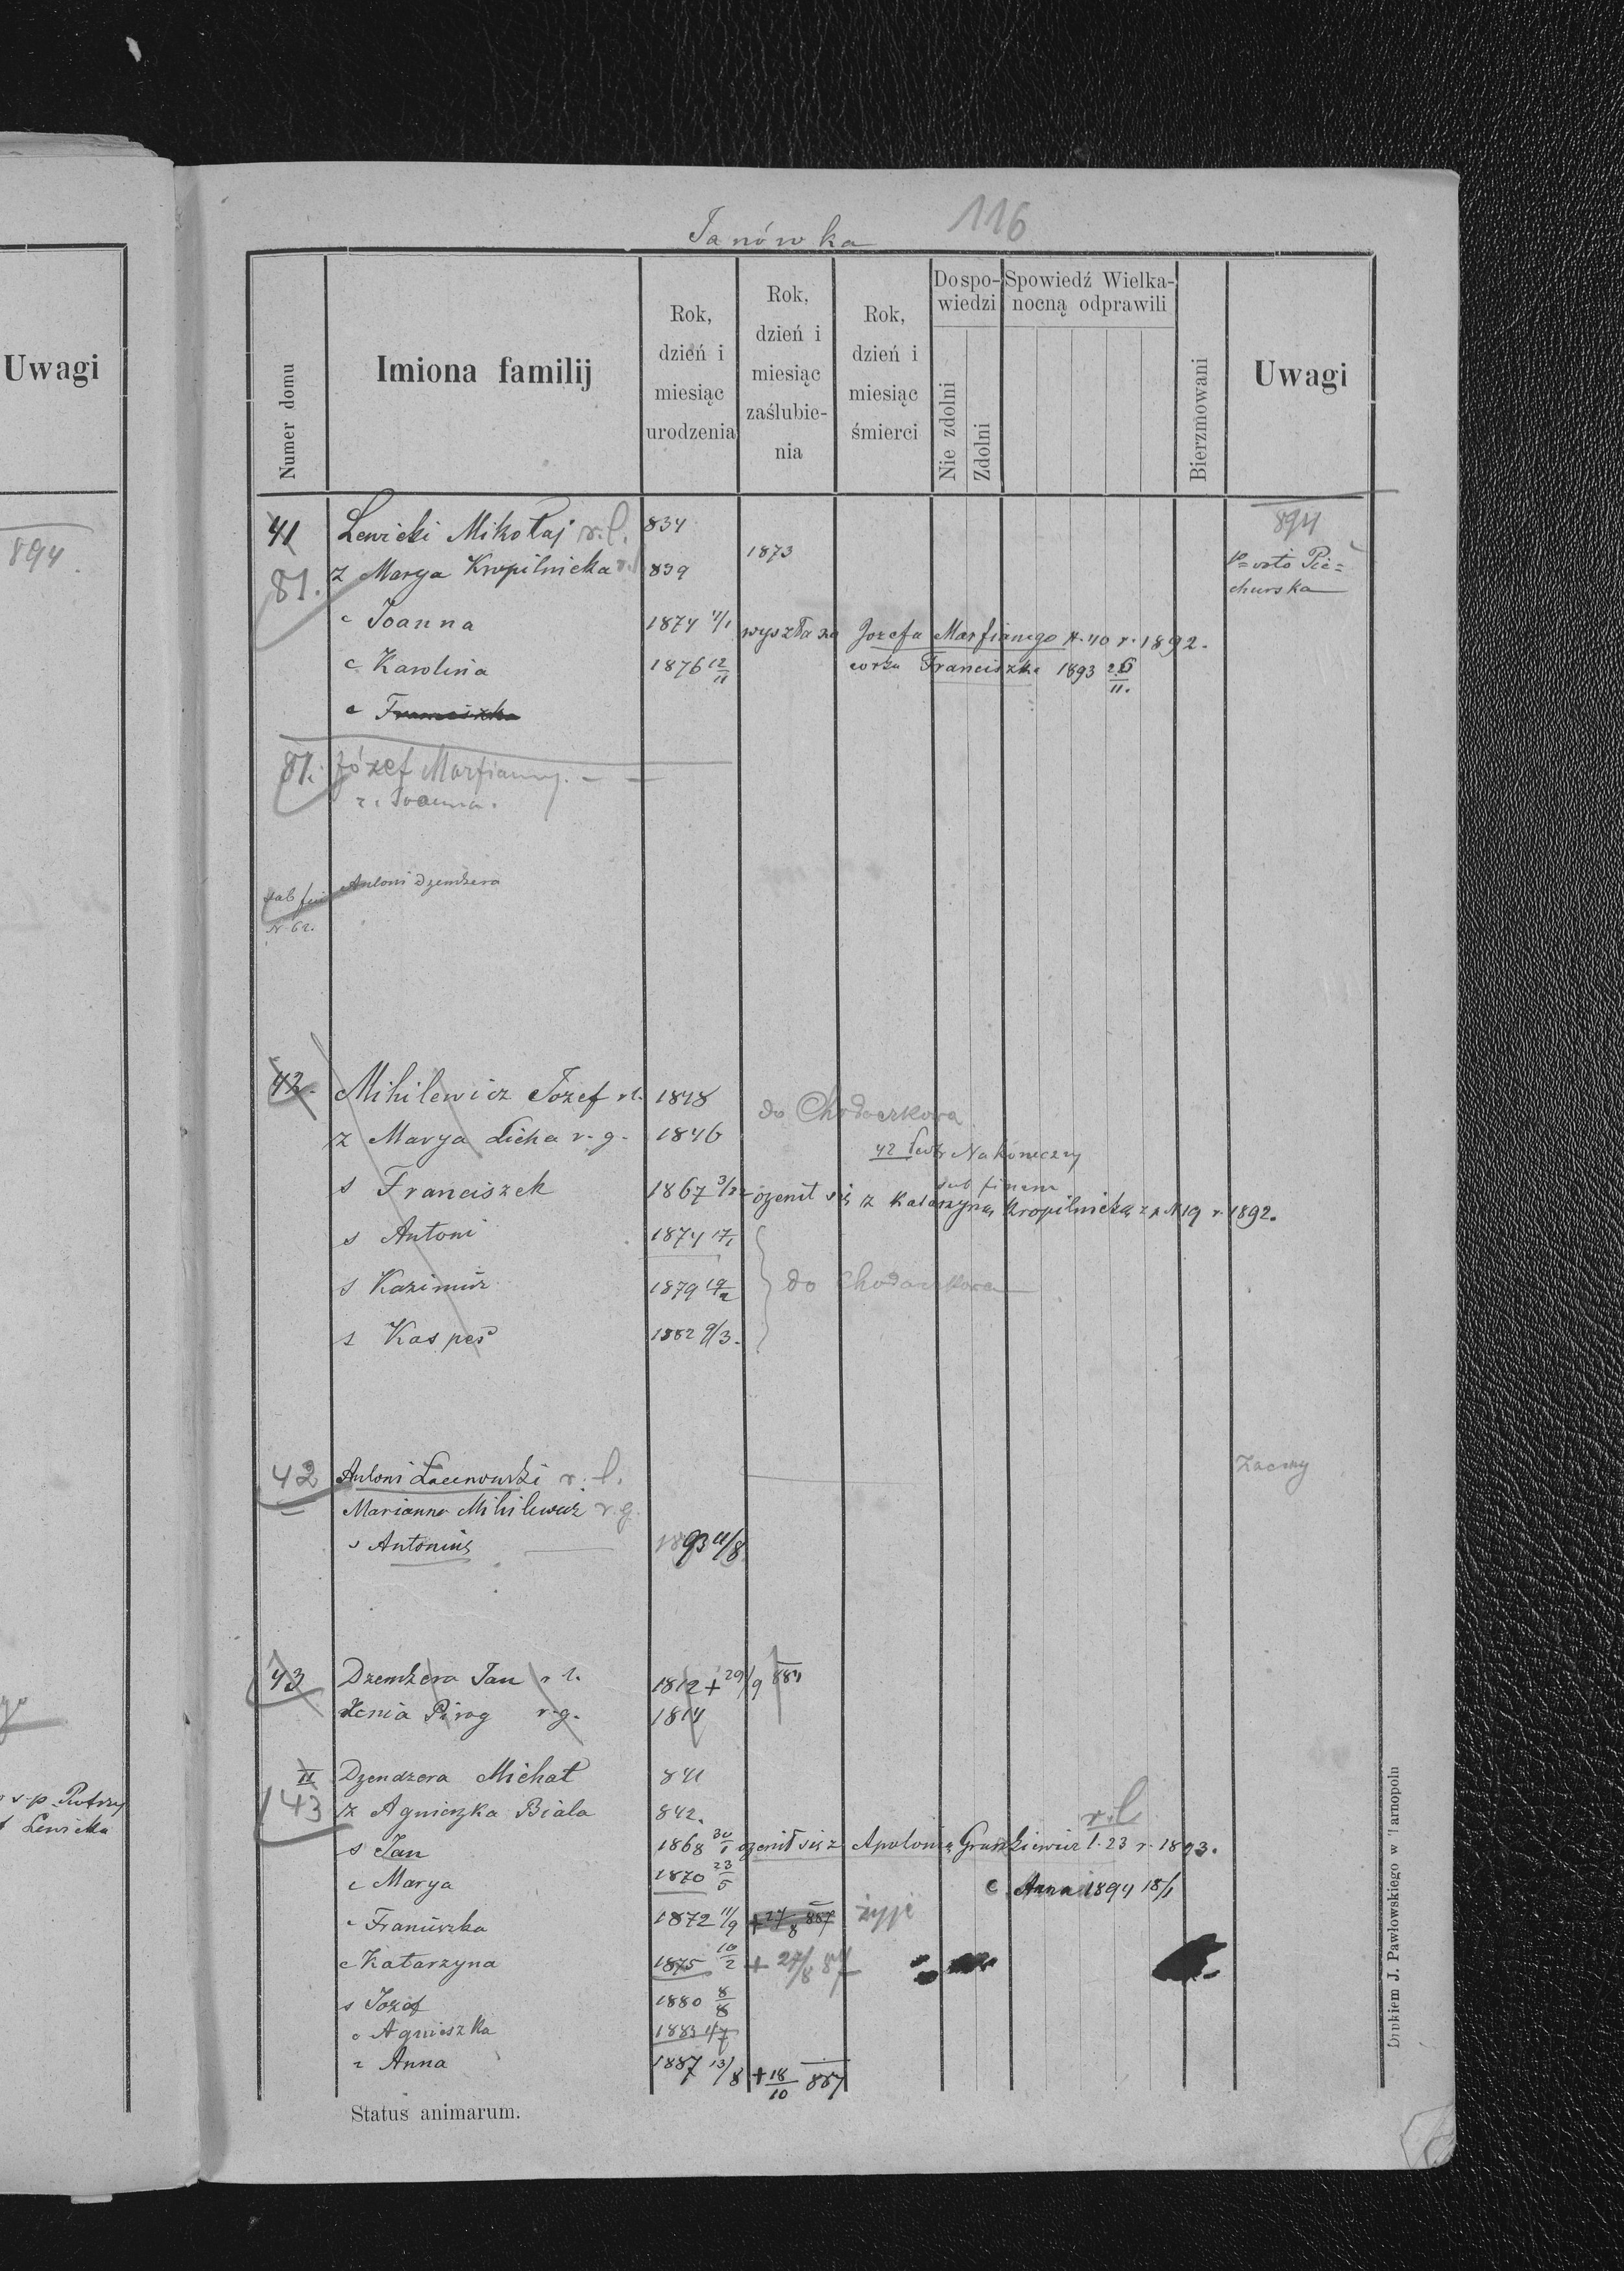 116
Janówka
Uwagi
894.
Numer domu
Imiona familij
Rok, dzień i miesiąc urodzenia
Rok, dzień i miesiąc zaślubienia
Rok, dzień i miesiąc śmierci
Do spowiedzi
Nie zdolni
Zdolni
Spowiedź Wielkanocną odprawili
Bierzmowani
Uwagi
41 Lewicki Mikołaj r.l. 834 894
81. z Marya Kropilnicka 839 1873
churska
c Joanna 1874 wyszła za Jozefa Marfianego N. 40 r. 1892.
c Karolina 1876 12/11 corka Franciszka 1893
c Franciszka
81. Józef Marfiany. - -
z. Joanna.
sub fin Antoni Dzendzera
N. 62.
42. Mihilewicz Jozef r.l. 1848 do Chodaczkowa
z Marya Licha r.g. 1846
42 Nakoneczny
sub finem
s Franciszek 1867 ożenił się z Katarzyną Kropilnicką z N 19 r. 1892.
s Antoni 1874 17/1
s Kazimir 1879 do Chodaczkowa
s Kasper 1882 9/3.
42 Antoni r. l.
Marianna Mihilewicz r.g.
s Antonius 1893 11/8
43 Dzendzera Jan r l. 1812 + 29/9 884
Xenia Pirog r.g. 1814
II Dzendzera Michał 841
43 z Agnieszka Biala 842.
r.l
s Jan 1868 ożenił się z Apolonią Gruszkiewicz l. 23 r. 1893.
c Marya 1870 23/5 c. Anna 1894 18/1
c Franciszka 1872 11/9 + 27/8 887 żyje
c Katarzyna 1875 10/2 + 27/8 87
s Jozef 1880 8/8
c Agnieszka 1883
c Anna 1887 13/8 + 18/10 887
Status animarum.
Drukiem J. Pawłowskiego w Tarnopolu
Lewicka